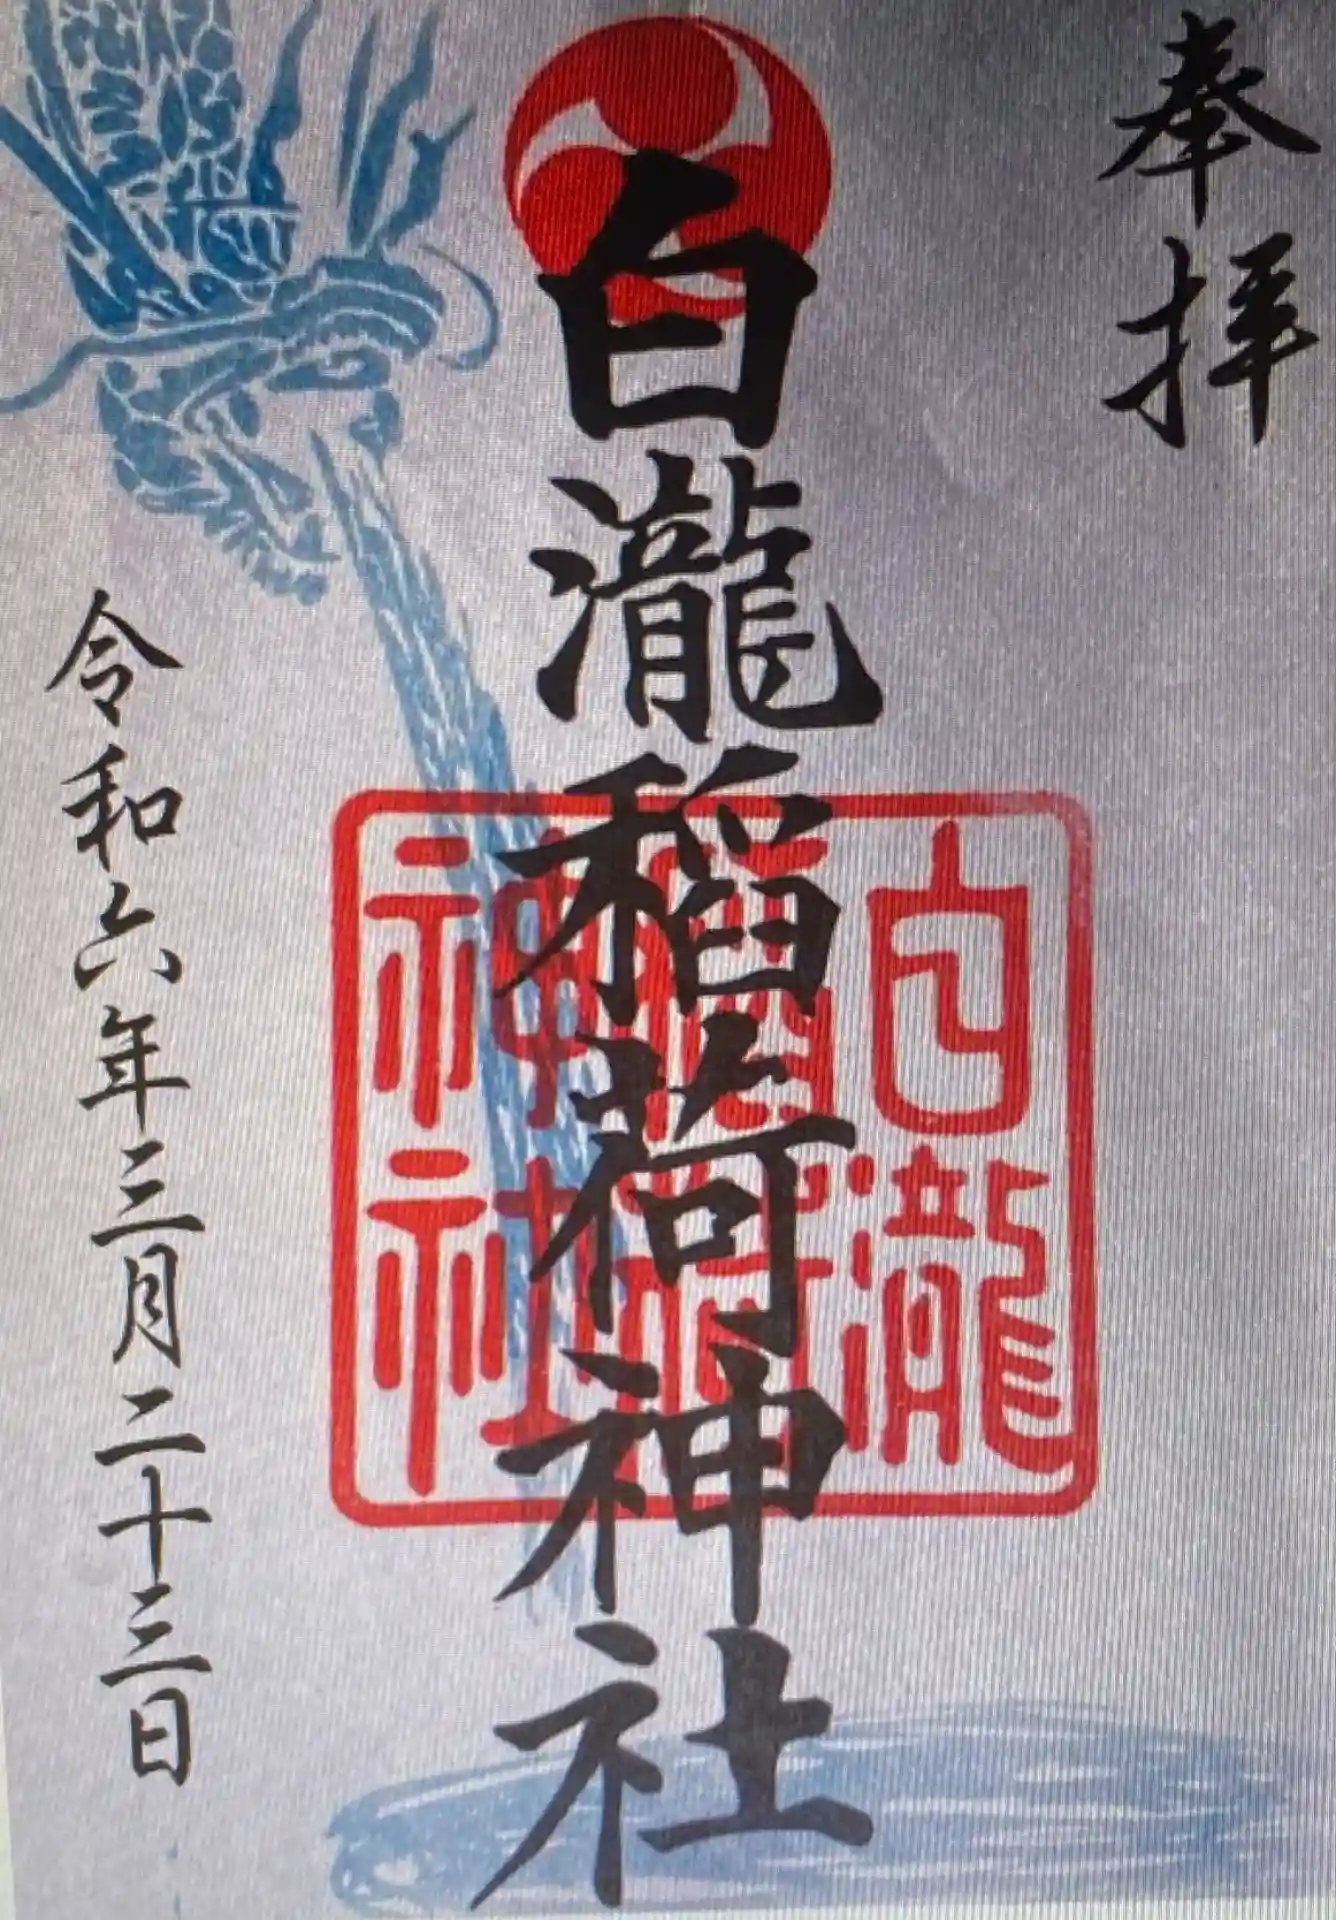 奉拝
白瀧稲荷神社
白瀧
稲荷
神社
令和六年三月二十三日